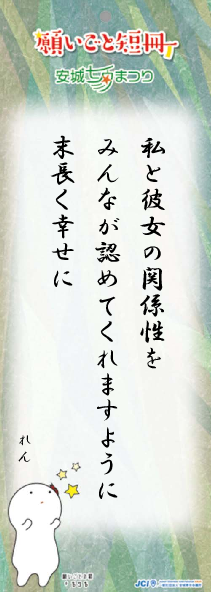 願いごと短冊
安城七夕まつり
私と彼女の関係性を
みんなが認めてくれますように
末長く幸せに
れん
JCI